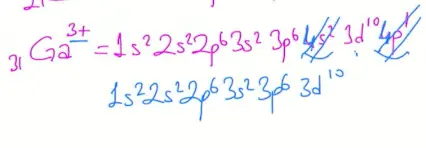 ₃₁Ga³⁺ = 1s² 2s² 2p⁶ 3s² 3p⁶ 4s² 3d¹⁰ 4p¹
1s² 2s² 2p⁶ 3s² 3p⁶ 3d¹⁰